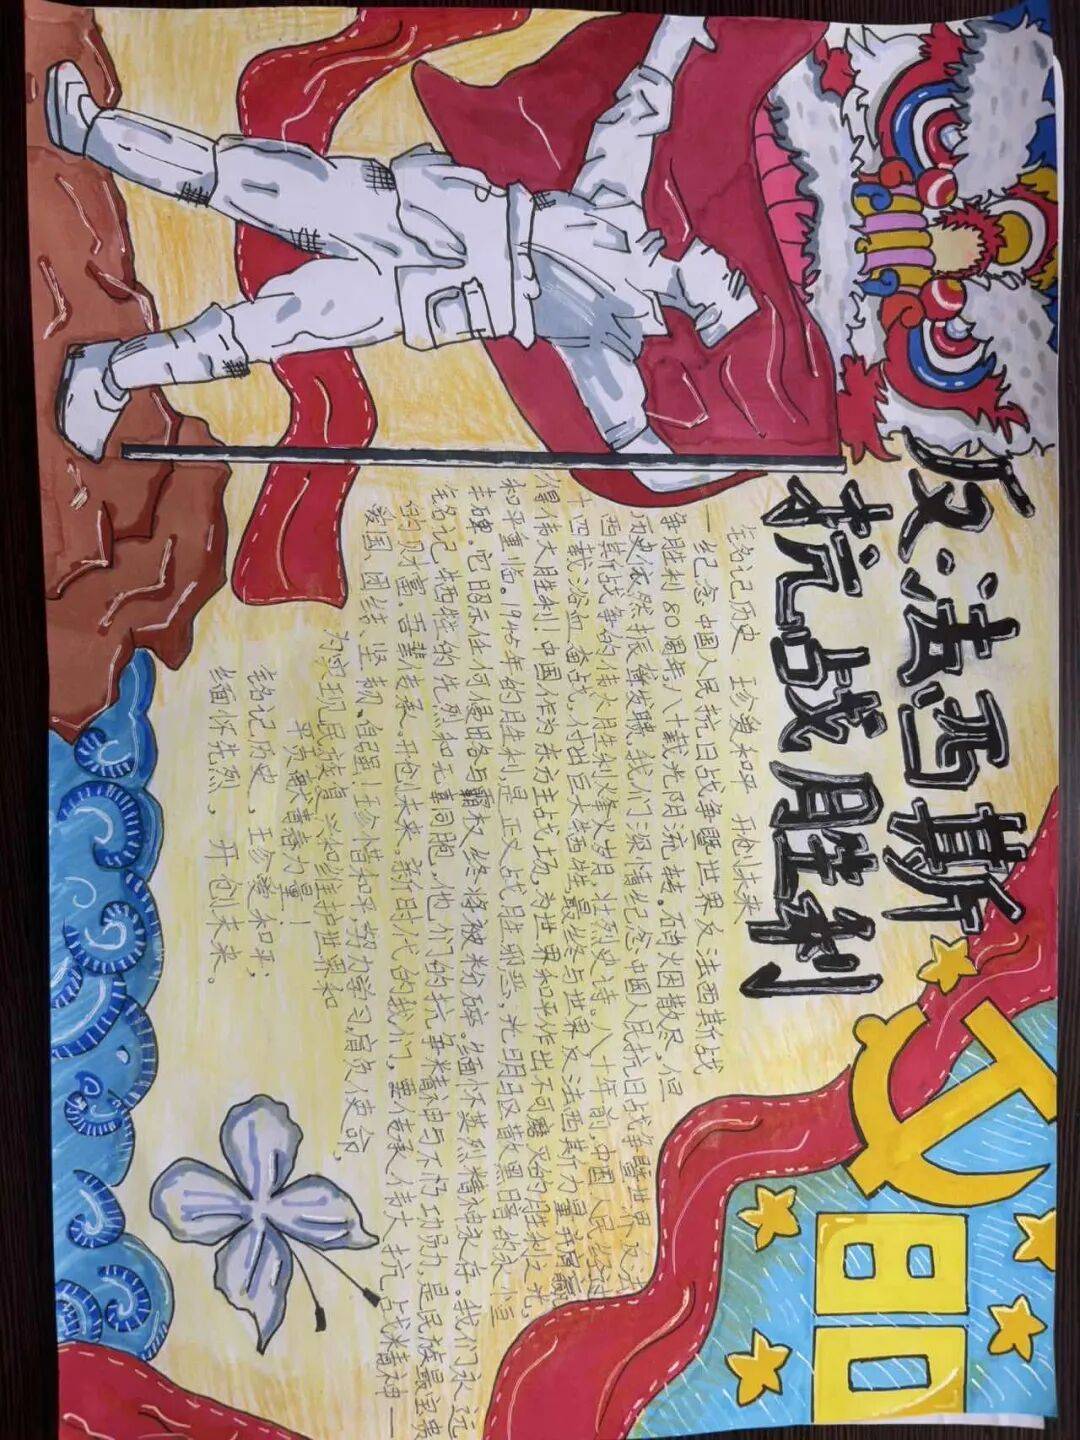 反法西斯
抗战胜利
80
铭记历史 珍爱和平 开创未来
一纪念中国人民抗日战争暨世界反法西斯战
争胜利80周年,八十载光阴流转。硝烟散尽,但
历史依然振聋发聩,我们深情纪念中国人民抗日战争暨世界反法
西斯战争的伟大胜利烽火岁月,壮烈史诗。八十年前,中国人民经过
十四载浴血奋战,付出巨大牺牲,最终与世界反法西斯力量共同赢
得伟大胜利!中国作为东方主战场,为世界和平作出不可磨灭的胜利之光,
和平重临。1945年的胜利,是正义战胜邪恶,光明驱散黑暗的永恒
丰碑。它昭示任何侵略与霸权终将被粉碎。缅怀英烈精神永存。我们永远
铭记牺牲的先烈和无辜同胞,他们的抗争精神与不朽功勋力是民族最宝贵
的财富,吾辈传承。开创未来,新时代的我们,要传承伟大抗战精神一
爱国、团结、坚韧、自强!珍惜和平,努力学习,肩负使命,
为实现民族复兴和维护世界和
平贡献青春力量!
铭记历史,珍爱和平;
缅怀先烈,开创未来。